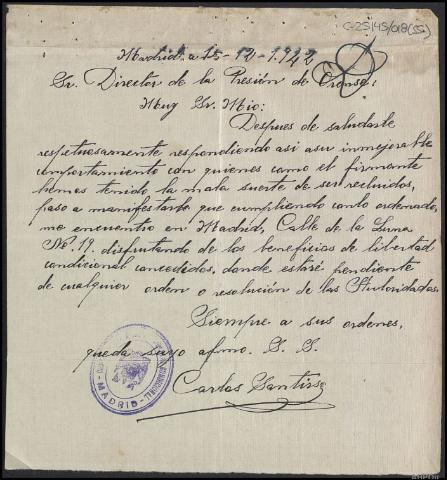 C-25145/018(55)
Madrid a 15-12-1.942
Sr. Director de la Presión de Orense:
Muy Sr. Mio:
Despues de saludarle
respetuosamente respondiendo asi asu inmejorable
comportamiento con quienes como el firmante
hemos tenido la mala suerte de ser recluidos,
paso a manifestarle que cumpliendo lo ordenado,
me encuentro en Madrid, Calle de la Luna
Nº. 19. disfrutando de los beneficios de libertad
condicional concedidos, donde estaré pendiente
de cualquier orden o resolución de las Autoridades.
Siempre a sus ordenes,
queda suyo afmo. S. S.
Carlos
MADRID